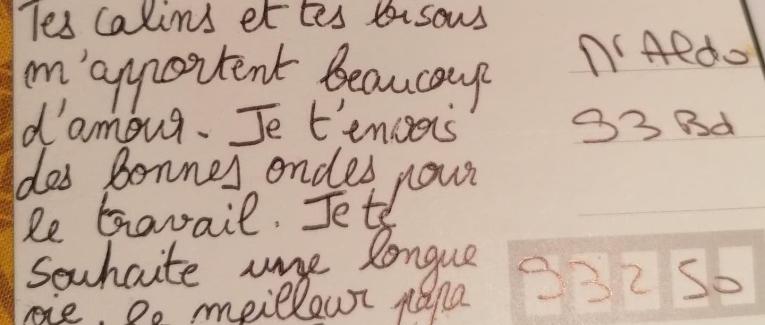 Tes calins et tes bisous
m'apportent beaucoup
d'amour. Je t'envois
des bonnes ondes pour
le travail. Je te
souhaite une longue
vie, le meilleur papa
Mr Aldo
93 Bd
93250